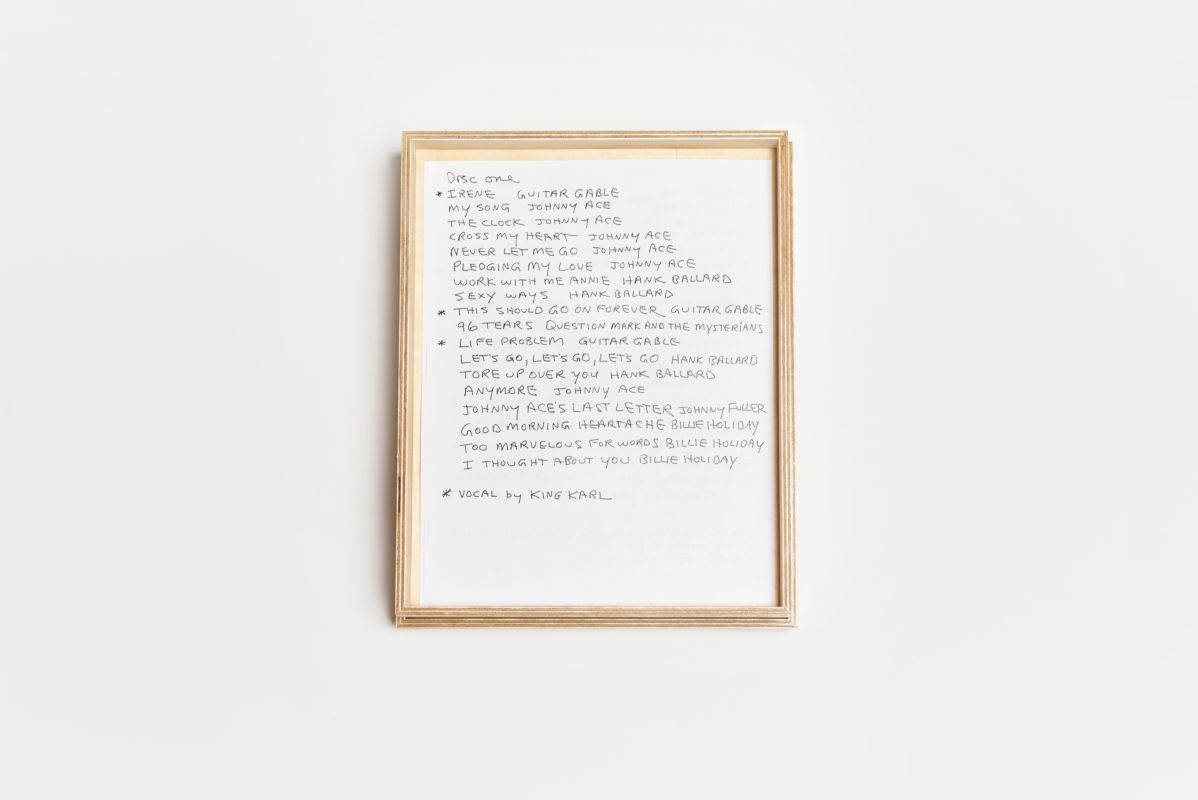 Disc one
* IRENE GUITAR GABLE
MY SONG JOHNNY ACE
THE CLOCK JOHNNY ACE
CROSS MY HEART JOHNNY ACE
NEVER LET ME GO JOHNNY ACE
PLEDGING MY LOVE JOHNNY ACE
WORK WITH ME ANNIE HANK BALLARD
SEXY WAYS HANK BALLARD
* THIS SHOULD GO ON FOREVER GUITAR GABLE
96 TEARS QUESTION MARK AND THE MYSTERIANS
* LIFE PROBLEM GUITAR GABLE
LET'S GO, LET'S GO, LET'S GO HANK BALLARD
TORE UP OVER YOU HANK BALLARD
ANYMORE JOHNNY ACE
JOHNNY ACE'S LAST LETTER JOHNNY FULLER
GOOD MORNING HEARTACHE BILLIE HOLIDAY
TOO MARVELOUS FOR WORDS BILLIE HOLIDAY
I THOUGHT ABOUT YOU BILLIE HOLIDAY
* VOCAL by KING KARL